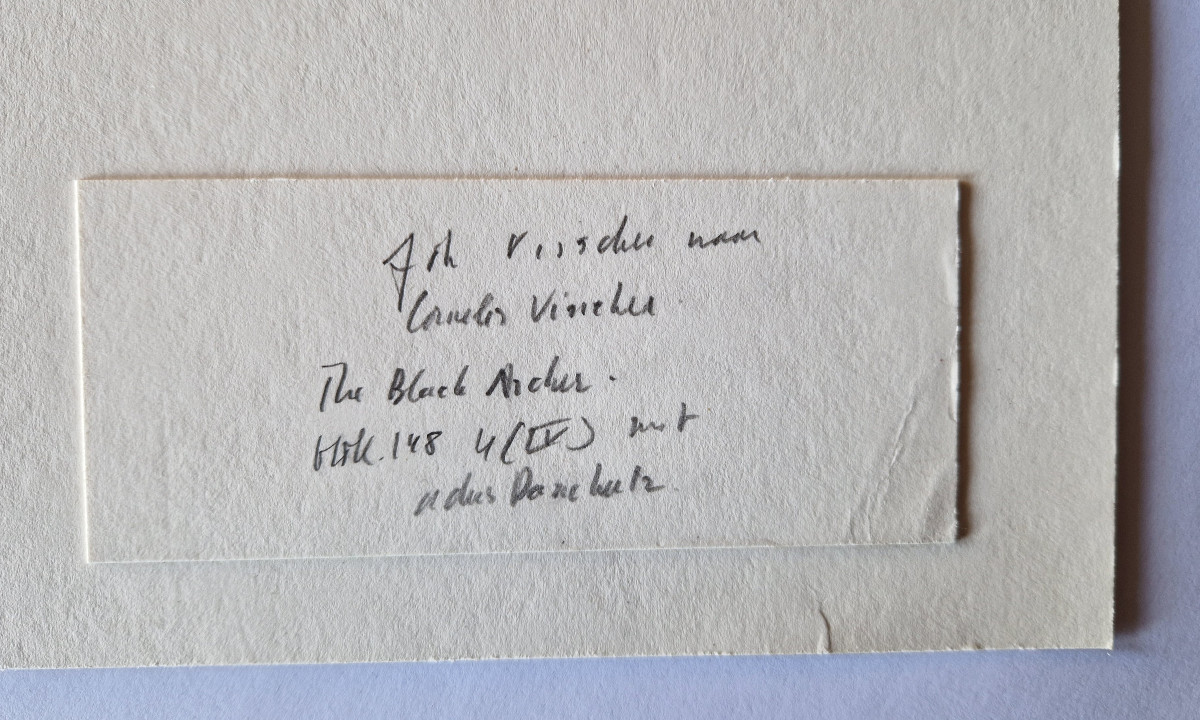 Joh Visscher naar
Cornelis Visscher
The Black Archer.
Holl. 148 4(IV) met
adres Danckertz